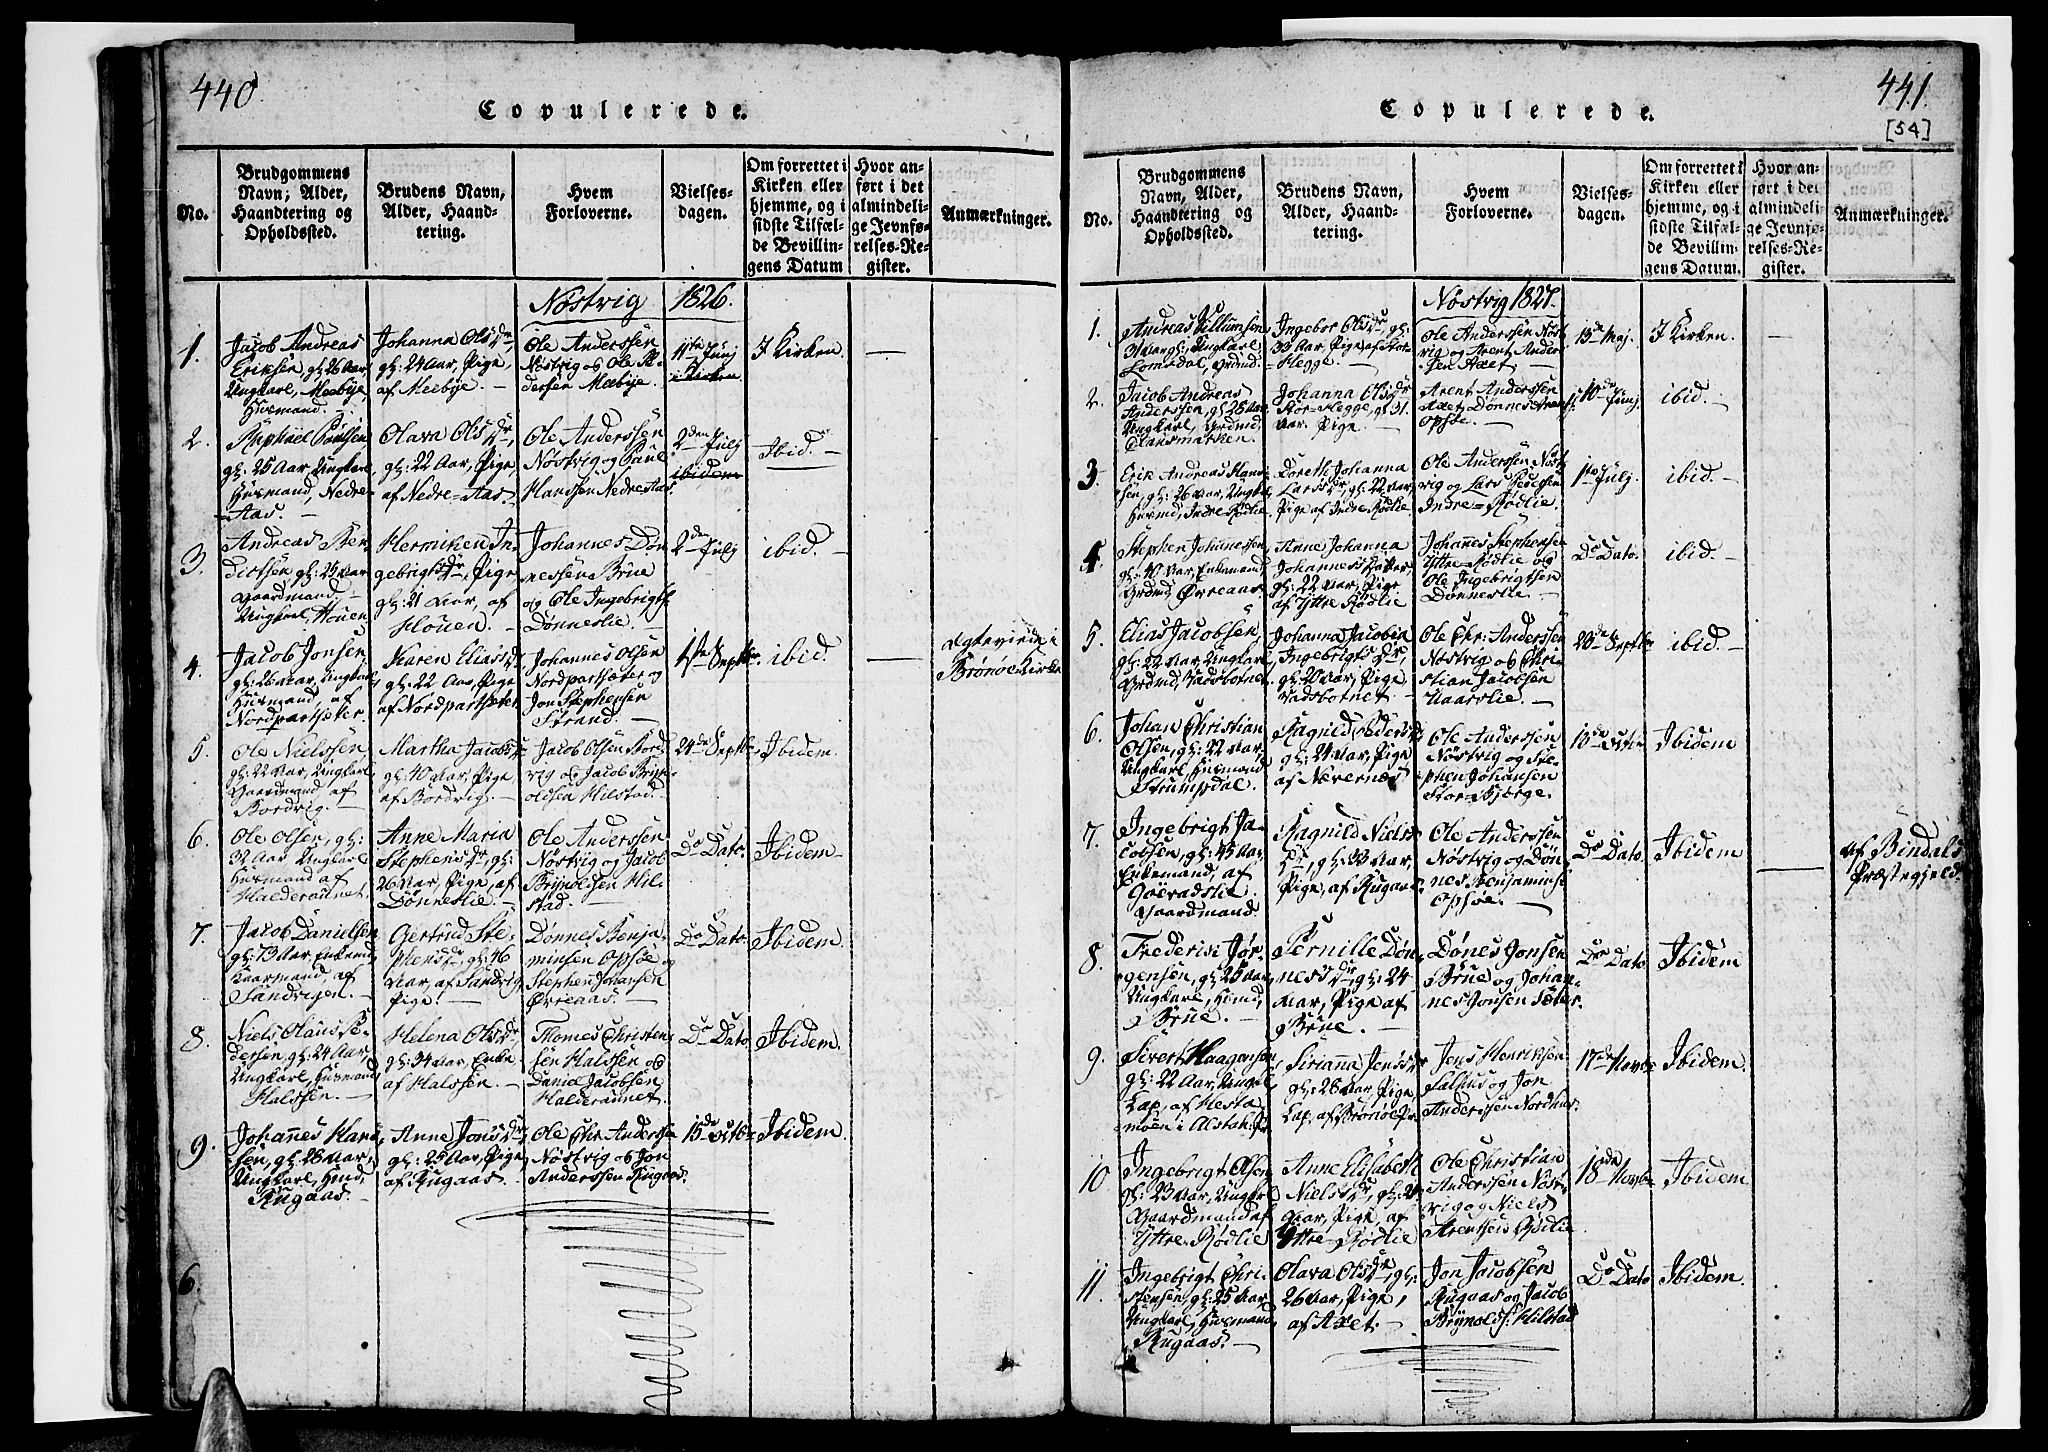 440.
Copulerede.
No.
Brudgommens
Navn; Alder,
Haandtering og
Opholdssted.
Brudens Navn,
Alder, Haand-
tering.
Hvem
Forloverne.
Vielses-
dagen.
Om forrettet i
Kirken eller
hjemme, og i
sidste Tilfæl-
de Bevillin-
gens Datum
Hvor an-
ført i det
almindeli-
ge Jevnfø-
relses-Re-
gister.
Anmærkninger.
Nöstvig 1826.
1.
Jacob Andreas
Eriksen, gl: 26 Aar
Ungkarl, Meebye
Huusmand.
Johanna Olsdr,
gl: 24 Aar, Pige,
af Meebye.
Ole Anderssen
Nöstvig og Ole
Meebye.
11te Junj
i Kirken
I Kirken.
2.
Raphael
gl: 25 Aar, Ungkarl
Huusmand, Nedre-
Aas.
Olava Olsdr,
gl: 22 Aar, Pige
af Nedre-Aas.
Ole Anderssen
Nöstvig og Paul
Hanssen Nedre Aas
2den Julj
ibidem
Ibid.
3.
Andreas Ben-
dictsen gl: 25 Aar
Gaardmand.
Ungkarl, Houen
Hermiken In-
gebrigtsdr, Pige
gl: 21 Aar, af
Houen.
Johannes Døn-
nessen Brue
og Ole Ingebrigts.
Dønneslie.
2den Julj
ibid.
4.
Jacob Jonsen,
gl: 26 Aar, Ungkarl
Huusmand, af
Nordpartsæter.
Karen Eliasdr
gl: 22 Aar, Pige
af Nordpartsæter
Johannes Olsen
Nordpartsæter og
Jon Stephensen
Strand.
Septbr.
ibid.
i
Brønøe Kirke
5.
Ole Nielssen
gl: 22 Aar, Ungkarl
Gaardmand af
Bordvig.
Martha Jacobsdr
gl: 40 Aar, Pige
af Bordvig.
Jacob Olsen Bord-
vig og Jacob Bryn-
oldsen Hilstad.
24de Septbr.
Ibidem.
6.
Ole Olsen, gl:
32 Aar Ungkarl
Huusmand af
Halderaunet.
Anne Maria
Stephensdr, gl:
26 Aar, Pige, af
Dønneslie.
Ole Anderssen
Nöstvig og Jacob
Brynoldsen Hil-
stad.
Do Dato.
Ibidem
7.
Jacob Danielsen
gl: 73 Aar Enkemd
af
Sandvigen.
Gertrud Ste-
phensdr, gl: 46
Aar, af Sandvig
Pige.
Dønnes Benja-
minsen Opsøe og
Stephen Johansen
Øvreaas.
Do Dato.
Ibidem
8.
Niels Olaus Pe-
dersen, gl: 24 Aar,
Ungkarl, Huusmand
Halssen.
Helena Olsdr
gl: 34 Aar, Enke
af Halssen.
Thomes Christen-
sen Halssen og
Daniel Jacobsen
Halderaunet.
Do Dato
Ibidem.
9.
Johannes Han-
sen, gl: 28 Aar,
Ungkarl, Hmd,
Rugaas.
Anne Jonsdr,
gl: 25 Aar, Pige,
af Rugaas.
Ole Chr: Anderssen
Nöstvig og Jon
Anderssen Rugaas.
15de Octbr
Ibidem.
6.
441.
[54]
Copulerede.
No.
Brudgommens
Navn, Alder,
Haandtering og
Opholdssted.
Brudens Navn,
Alder, Haand-
tering.
Hvem
Forloverne.
Vielses-
dagen.
Om forrettet i
Kirken eller
hjemme, og i
sidste Tilfæl-
de Bevillin-
gens Datum.
Hvor an-
ført i det
almindeli-
ge Jevnfø-
relses-Re-
gister.
Anmærkninger.
Nöstvig 1827.
1.
Andreas Villumsen
31 Aar gl: Ungkarl
Lomsdal, Grdmd.
Ingebor Olsdr, gl:
33 Aar, Pige af Stor-
Hegge.
Ole Anderssen Nöst-
vig og Arent Ander-
sen Axet.
13de Maj.
I Kirken.
2.
Jacob Andreas
Anderssen, gl: 25 Aar
Ungkarl, Grdmd.
Johanna Olsdr
Stor-Hegge, gl: 31
Aar. Pige.
Arent Anderssen
Axet, Dønnes
Opsøe.
10de Junj.
ibid.
3.
Erik Andreas Han-
sen, gl: 26 Aar, Ungkl
Huusmd, Indre-Rødlie.
Doreth Johanna
Larsdr, gl: 22 Aar,
Pige af Indre Rødlie
Ole Anderssen Nöst-
vig og Lars
Indre-Rødlie.
1te Julj.
ibid.
4.
Stephen Johannessen,
gl: 40 Aar, Enkemand
Grdmd, Øvreaas.
Anne Johanna
Johannesdatter,
gl: 22 Aar, Pige
af Yttre Rødlie
Johannes Stephensen
Yttre-Rødlie og
Ole Ingebrigtsen
Dønneslie.
Do Dato.
ibid.
5.
Elias Jacobsen
gl: 22 Aar, Ungkarl
Grdmd, Vadsbotnet.
Johanna Jacobia
Ingebrigtsdr,
gl: 20 Aar, Pige
Vadsbotnet.
Ole Chr: Anderssen
Nöstvig og Chri-
stian Jacobsen
Aarslie.
Septbr
ibid.
6.
Johan Christian
Olsen, gl: 22 Aar,
Ungkarl, Huusmand
Strumpdal.
Ragnild Pedersdr
gl: 24 Aar, Pige
af Nevernes
Ole Anderssen
Nöstvig og Ste-
phen Johansen
Stor-Bjørge.
Ibidem
7.
Ingebrigt Ja-
cobsen, gl: 45 Aar,
Enkemand, af
Gaardmand.
Ragnild Niels-
dr, gl: 23 Aar,
Pige, af Rugaas
Ole Anderssen
Nöstvig og Døn-
nes Benjamins:
Opsøe.
Do Dato.
Ibidem
af Bindals
Præstegjeld.
8.
Frederik Jør-
gensen, gl: 25 Aar,
Ungkarl, Hsmd,
Brue.
Pernille Døn-
nesdr, gl: 24
Aar, Pige af
Brue.
Dønes Jonsen
Brue og Johan-
nes Jonsen Sæter.
Do Dato
Ibidem
9.
Sivert Haagensen
gl: 22 Aar, Ungkl
Lap, af Hesta-
moen i Alstah: Pr.
Sirianna Jensdr
gl: 26 Aar, Pige,
Lap, af Brønöe Pr.
Jens Henriksen
Salhus og Jon
Anderssen Nordhus.
17de Novbr
Ibidem.
10
Ingebrigt Olsen
gl: 23 Aar, Ungkarl
Gaardmand af
Yttre-Rødlie
Anne Elisabeth
Nielsdr, gl:
Aar, Pige, af
Yttre-Rødlie
Ole Christian
Anderssen Nöst-
vig og Niels
Arentsen Rødlie
18de Novbr
Ibidem
11.
Ingebrigt Chri-
stensen, gl: 25 Aar
Ungkarl, Huusmand
Rugaas.
Olava Olsdr, gl:
26 Aar, Pige,
af Axet.
Jon Jacobsen
Rugaas og Jacob
Brynolds: Hilstad
Do Dato
Ibidem.